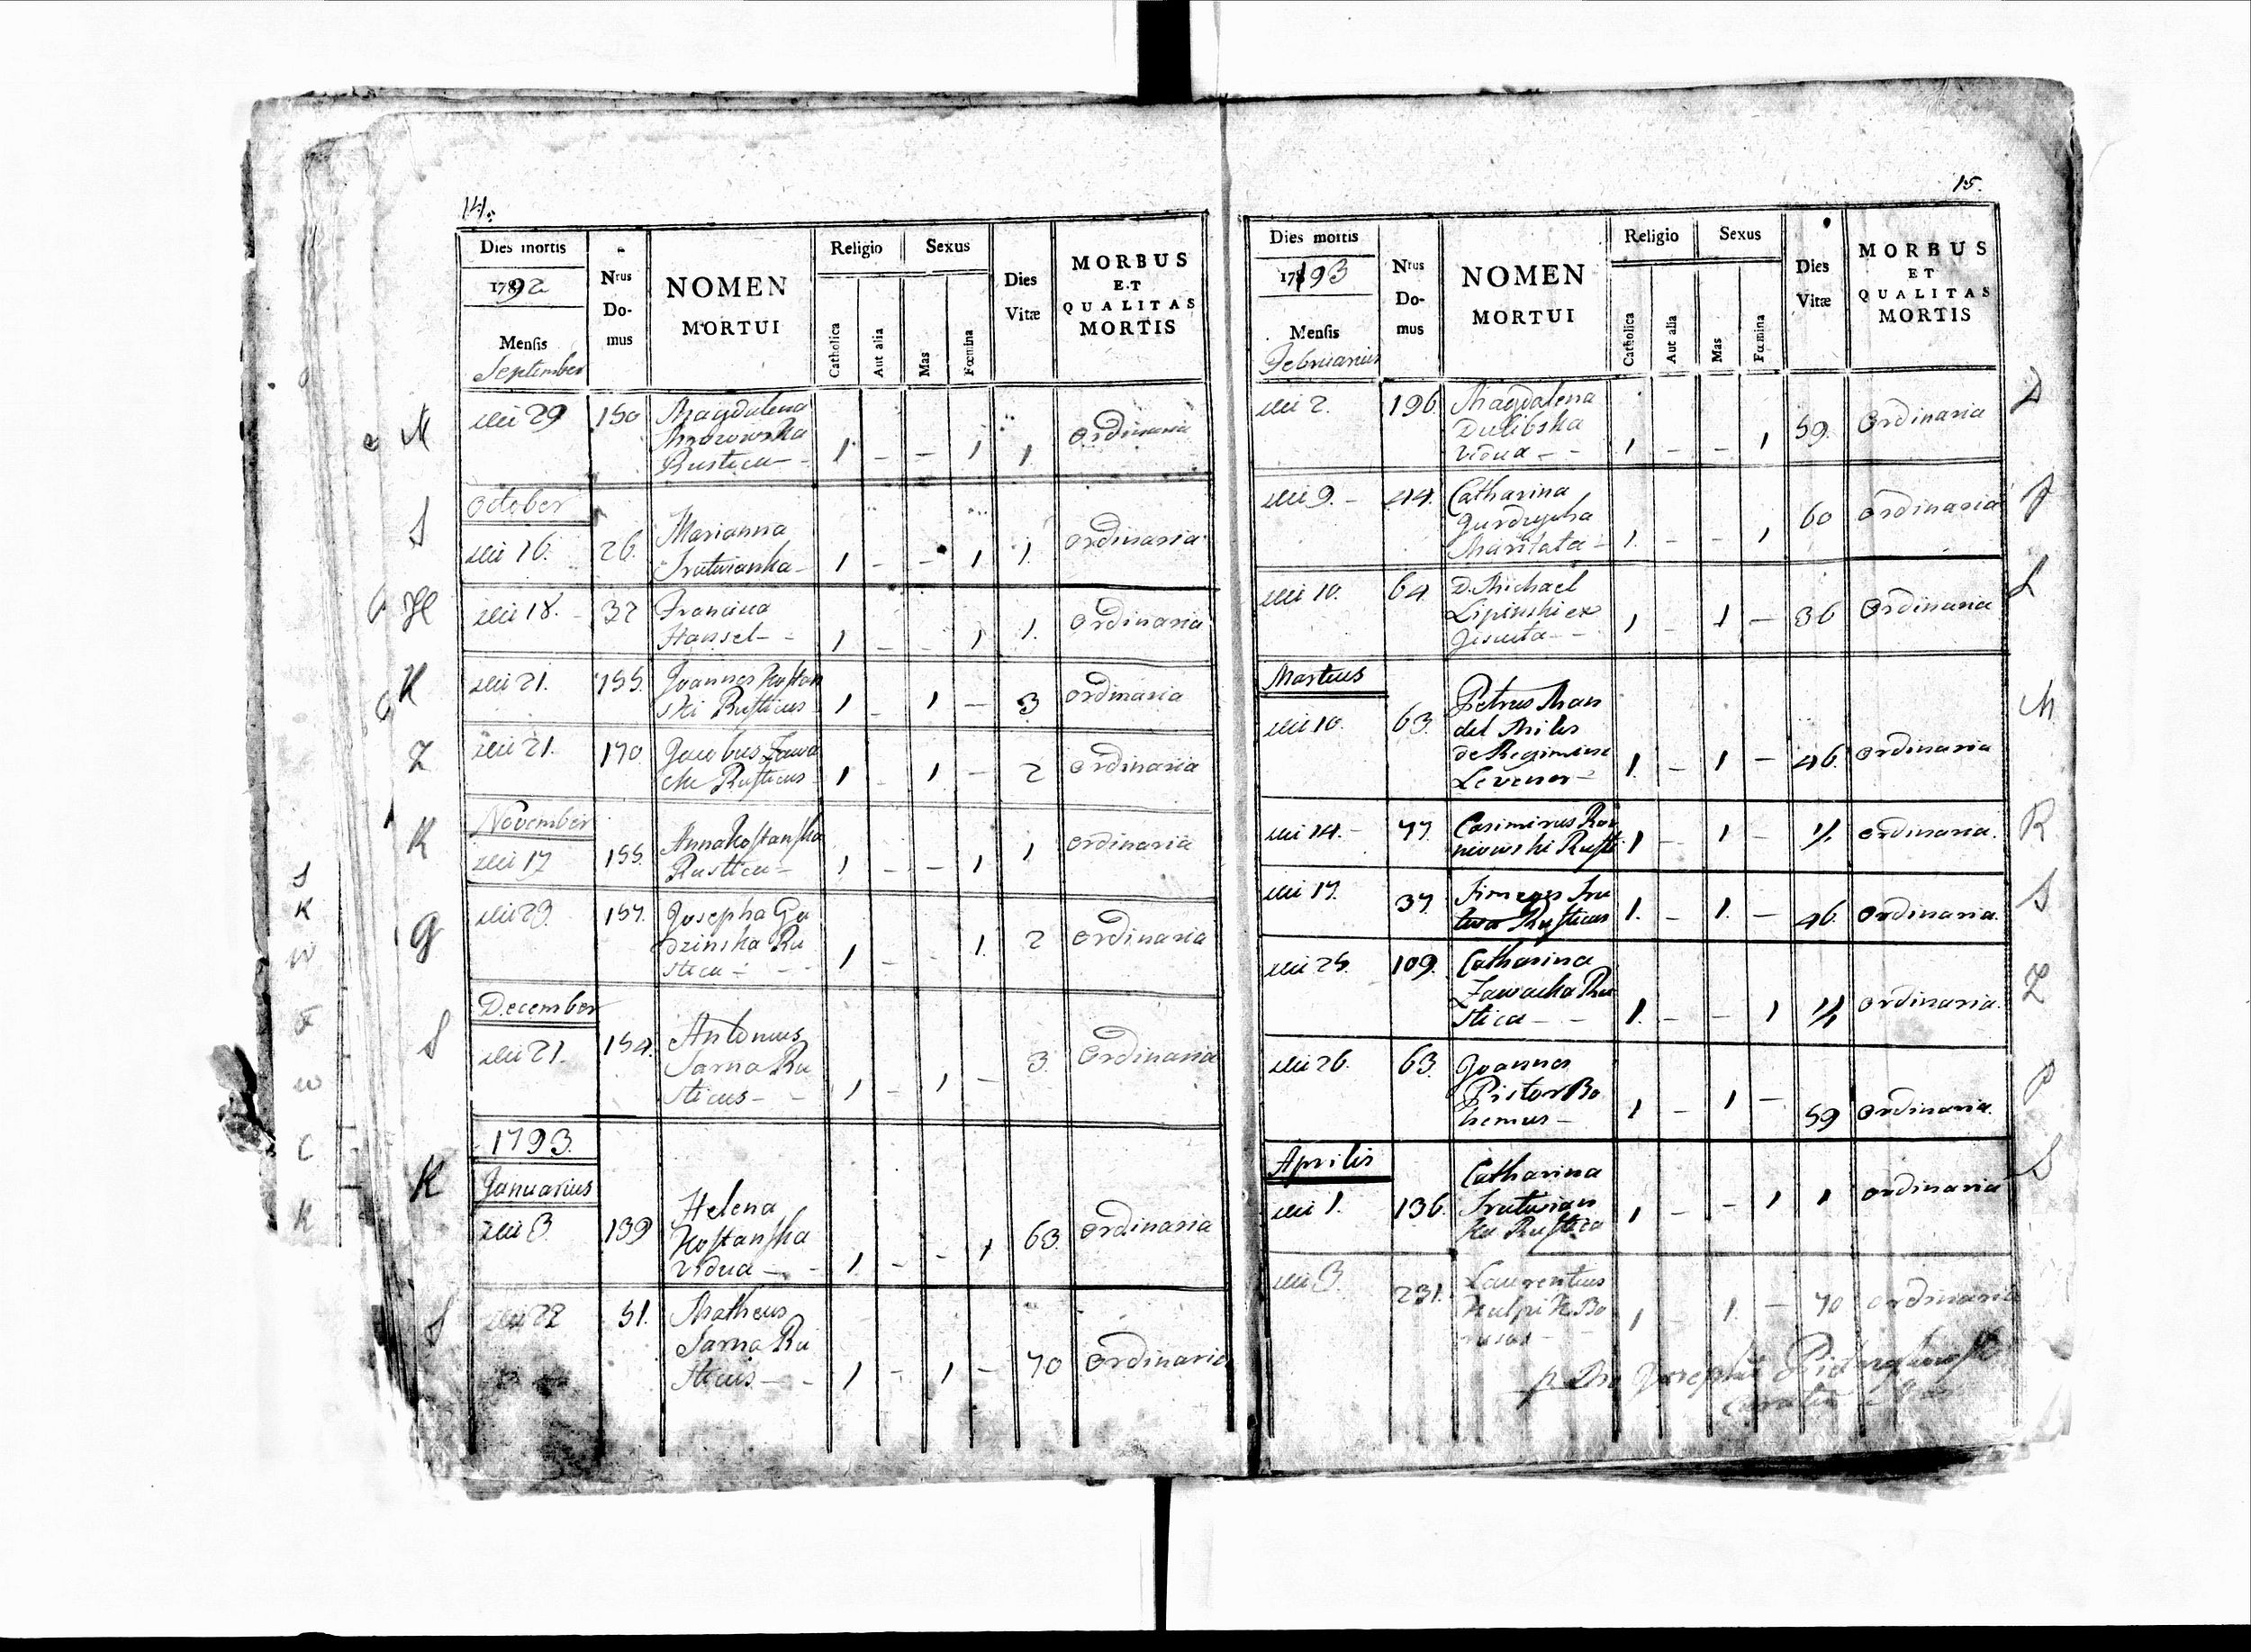 14.
Dies mortis
1792
Mensis
September
Nrus
Do-
mus
NOMEN
MORTUI
Religio
Catholica
Aut alia
Sexus
Mas
Fœmina
Dies
Vitæ
MORBUS
ET
QUALITAS
MORTIS
M
die 29 150 Magdalena
Rustica — 1 – – 1 1 ordinaria
October
S
die 16. 26. Marianna
Srutwianka – 1 – – 1 1. ordinaria
H
die 18. 32 Francisca
Hansel – 1 – – 1 1. ordinaria
K
die 21. 155. Joannes Kostan
ski Rusticus 1 – 1 – 3 ordinaria
Z
die 21. 170 Jacobus Zawa
cki Rusticus – 1 – 1 – 2 ordinaria
November
K
die 17 155. Anna Kostanska
Rustica – 1 – – 1 1 ordinaria
G
die 23. 157. Josepha Go
dzinska Ru
stica – 1 – – 1. 2 ordinaria
December
S
die 21. 154. Antonius
Sarna Ru
sticus – 1 – 1 – 3. ordinaria
1793.
Januarius
K
die 3. 139 Helena
Kostanska
vidua – 1. – – 1 63. ordinaria
S
die 22 51. Matheus
Sarna Ru
sticus – 1 – 1 – 70 ordinaria
S
K
W
F
W
C
K
15.
Dies mortis
1793
Mensis
Februarius
Nrus
Do-
mus
NOMEN
MORTUI
Religio
Catholica
Aut alia
Sexus
Mas
Fœmina
Dies
Vitæ
MORBUS
ET
QUALITAS
MORTIS
die 2. 196 Magdalena
Dulibska
vidua – – 1 – – 1 59. ordinaria
D
die 9. – 44. Catharina
Maritata – 1. – – 1 60 ordinaria
die 10. 64 D. Michael
Lipinski ex
Jesuita – 1 – 1 – 36 ordinaria
L
Martius
die 10. 63. Petrus Man
del Miles
de Regimine
1. – 1 – 46. ordinaria
M
die 14. – 77. Casimirus Rav
niowski Rusti 1 – 1 – 1/1 ordinaria.
R
die 17. 37. Simeon Sru
twa Rusticus 1. – 1. – 46. ordinaria.
S
die 25. 109. Catharina
Zawacka Ru
stica – 1. – – 1 1/1 ordinaria.
Z
die 26. 63. Joannes
Pistor Bo
hemus – 1 – 1 – 59 ordinaria.
P
Aprilis
die 1. 136. Catharina
Srutwian
ka Rustica 1 – – 1 1 ordinaria
S
die 3. 231. Laurentius
1 – 1. – 70 ordinaria